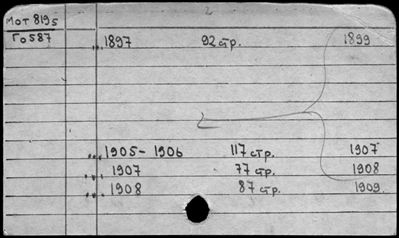 Мот 8195
Го 587
... 1897 92 стр. 1899
... 1905 - 1906 117 стр. 1907
... 1907 77 стр. 1908
... 1908 87 стр. 1909